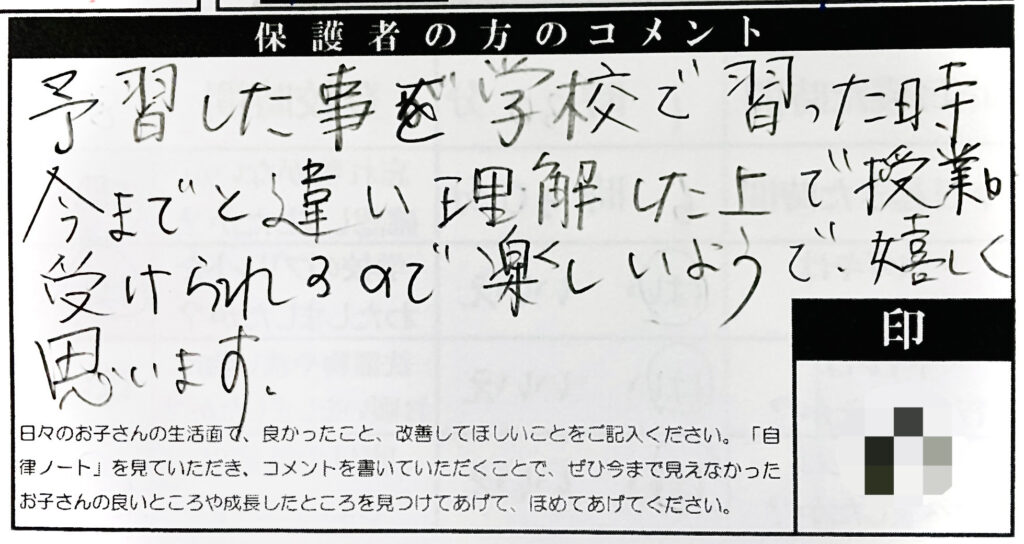 保護者の方のコメント
予習した事を学校で習った時
今までと違い理解した上で授業
受けられるので楽しいようで、嬉しく
思います。
印
日々のお子さんの生活面で、良かったこと、改善してほしいことをご記入ください。「自
律ノート」を見ていただき、コメントを書いていただくことで、ぜひ今まで見えなかった
お子さんの良いところや成長したところを見つけてあげて、ほめてあげてください。